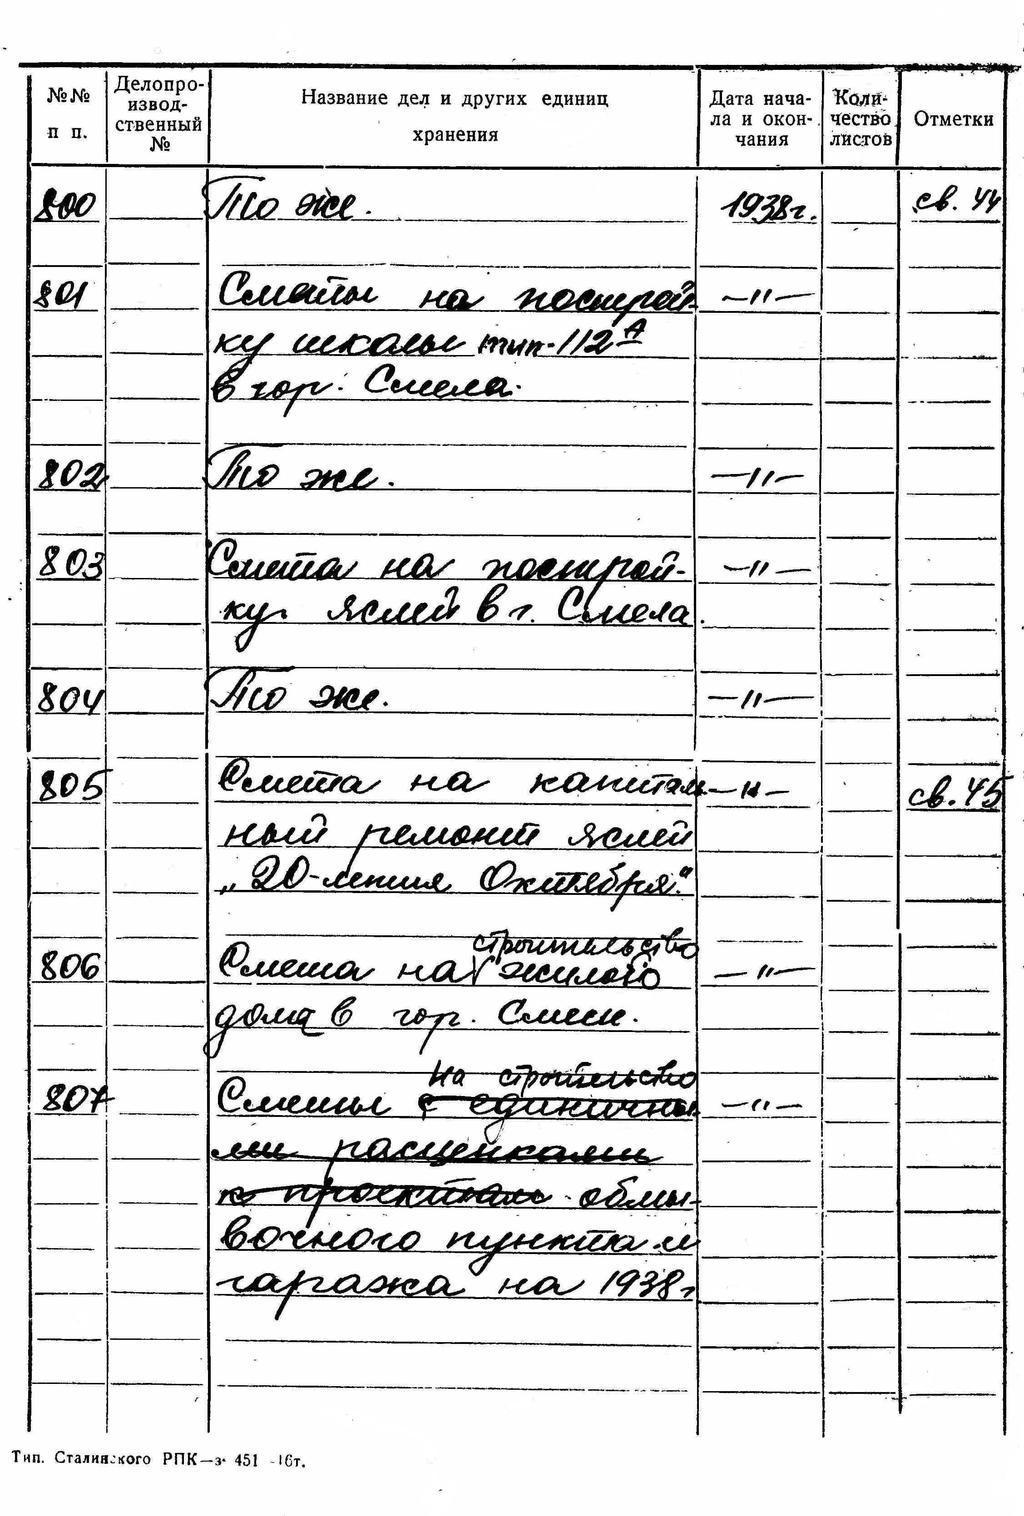 №№ п п.
Делопро-
извод-
ственный
№
Название дел и других единиц
хранения
Дата нача-
ла и окон-
чания
Коли-
чество
листов
Отметки
800 То же. 1938г. св. 44
801 Сметы на построй- —"—
ку школы тип-112А
в гор. Смела.
802 То же. —"—
803 Смета на построй- —"—
ку яслей в г. Смела.
804 То же. —"—
805 Смета на капиталь- —"— св. 45
ный ремонт яслей
„20-летия Октября."
строительство
806 Смета на жилого —"—
дома в гор. Смеле.
на строительство
807 Сметы с единичны- —"—
ми расценками
к проектам обмы-
вочного пункта и
гаража на 1938г
Тип. Сталинского РПК—з. 451 -16т.